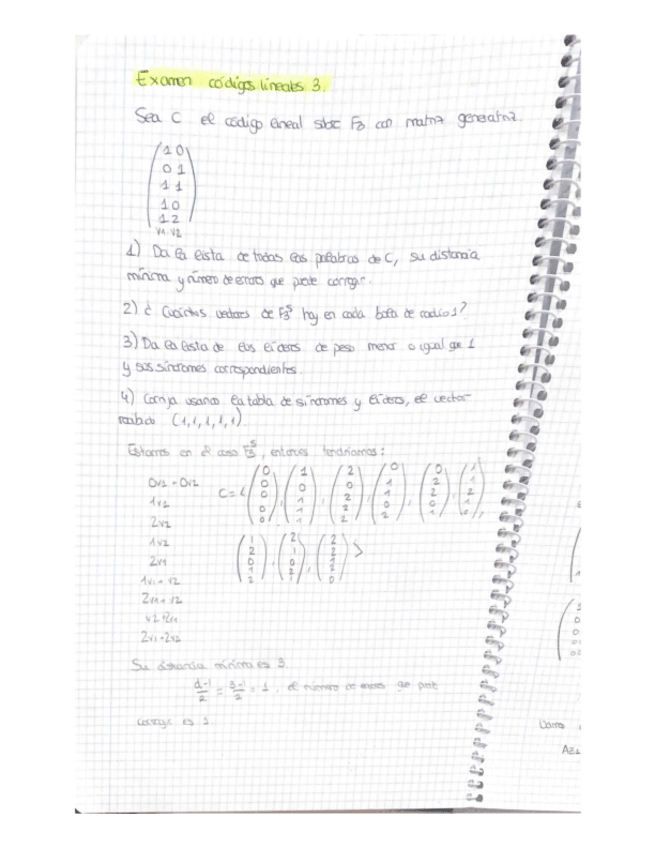 Examen códigos lineales 3.
Sea C el código lineal sobre F3 con matriz generatriz.
1 0
0 1
1 1
1 0
1 2
v1 v2
1) Da la lista de todas las palabras de C, su distancia
mínima y número de errores que puede corregir.
2) ¿Cuántos vectores de F3^5 hay en cada bola de radio 1?
3) Da la lista de los líderes de peso menor o igual que 1
y sus síndromes correspondientes.
4) Corrija usando la tabla de síndromes y líderes, el vector
recibido (1,1,1,1,1).
Estamos en el caso F3^5, entonces tendríamos:
0v1 + 0v2
1v2
2v2
1v2
2v1
1v1 + v2
2v1 + v2
v2 + 2v1
2v1 + 2v2
C = <
0 1 2 0 0 1
0 0 0 1 2 1
0 1 2 1 2 2
0 1 2 0 0 1
0 1 2 2 1 0
1 2 2
2 1 2
0 0 1
1 2 2
2 1 0
>
Su distancia mínima es 3.
d-1/2 = 3-1/2 = 1, el número de errores que puede
corregir es 1